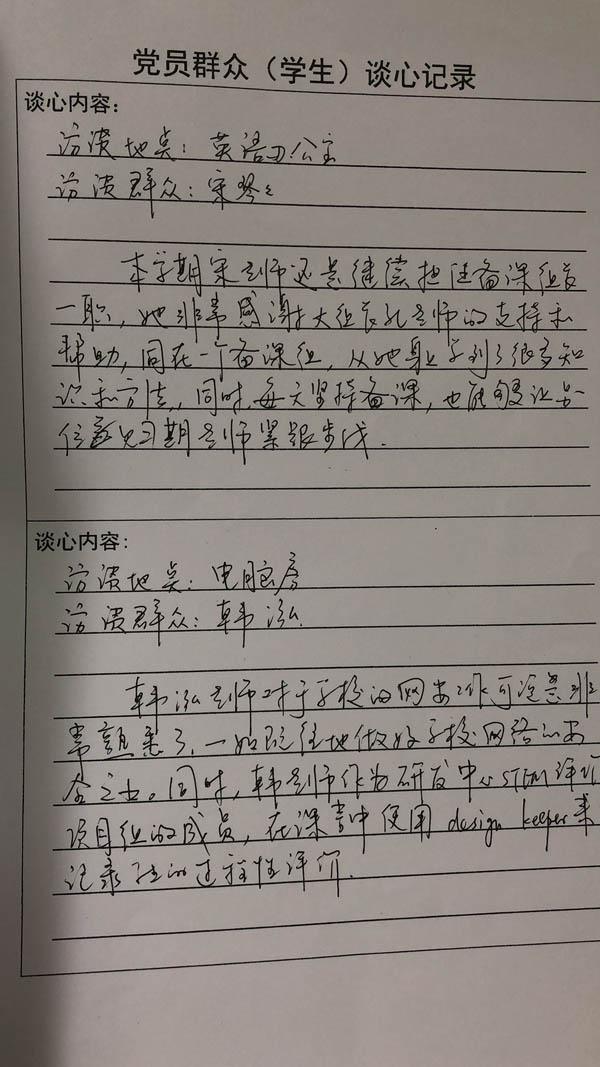 党员群众（学生）谈心记录
谈心内容：
访谈地点：英语办公室
访谈群众：宋琴
本学期宋老师还是继续担任备课组长
一职，她非常感谢大组长孔老师的支持和
帮助，同在一个备课组，从她身上学到了很多知
识和方法，同时，每天坚持备课，也能够让
位见习期老师紧跟步伐.
谈心内容：
访谈地点：电脑房
访谈群众：韩泓
韩泓老师对于学校的网安工作可说是非
常熟悉了，一如既往地做好学校网络的安
全工作。同时，韩老师作为研发中心STEM评价
项目组的成员，在课堂中使用design keeper来
记录学生的过程性评价.